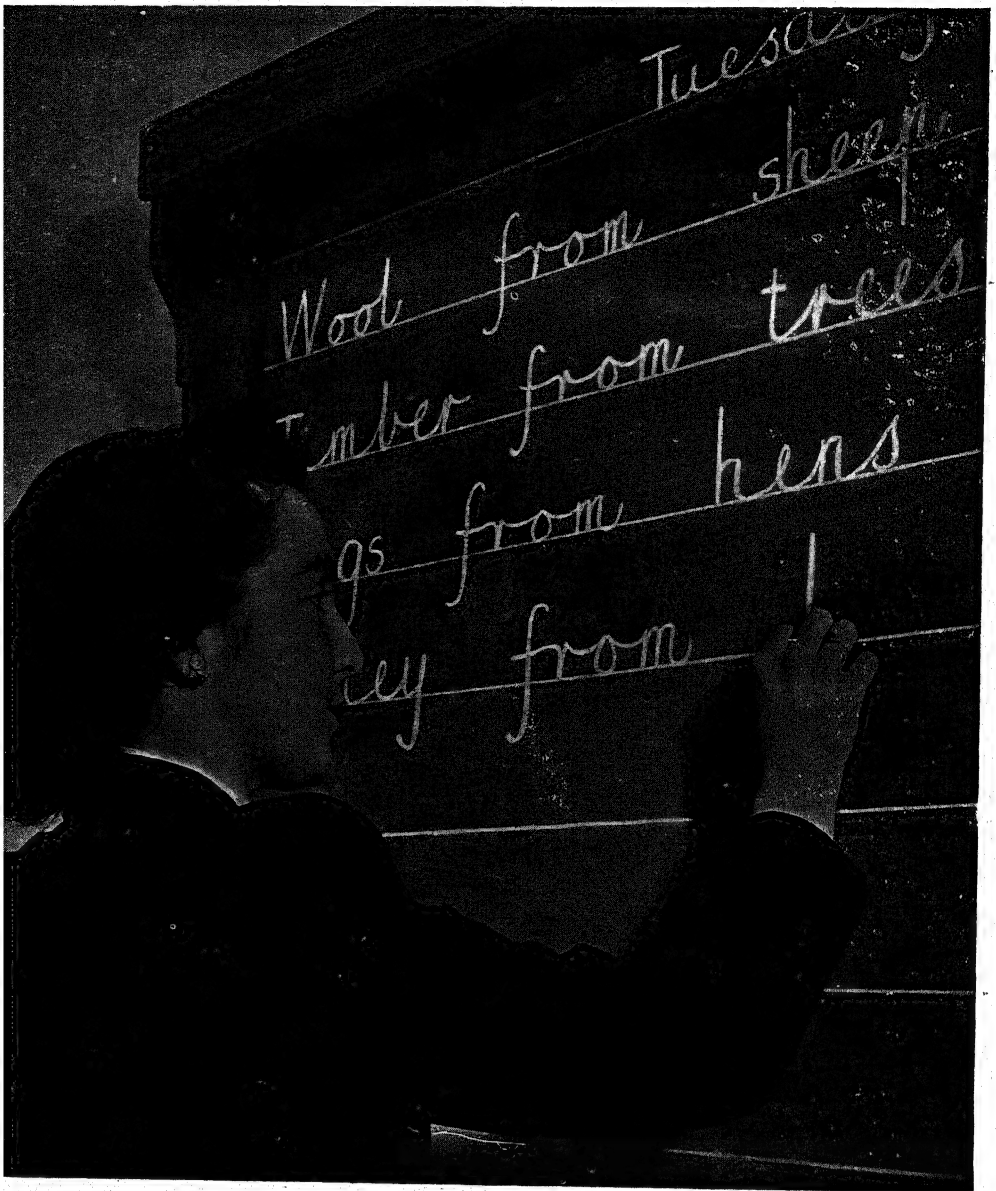 Tuesday
Wool from sheep.
Timber from trees
gs from hens
ey from